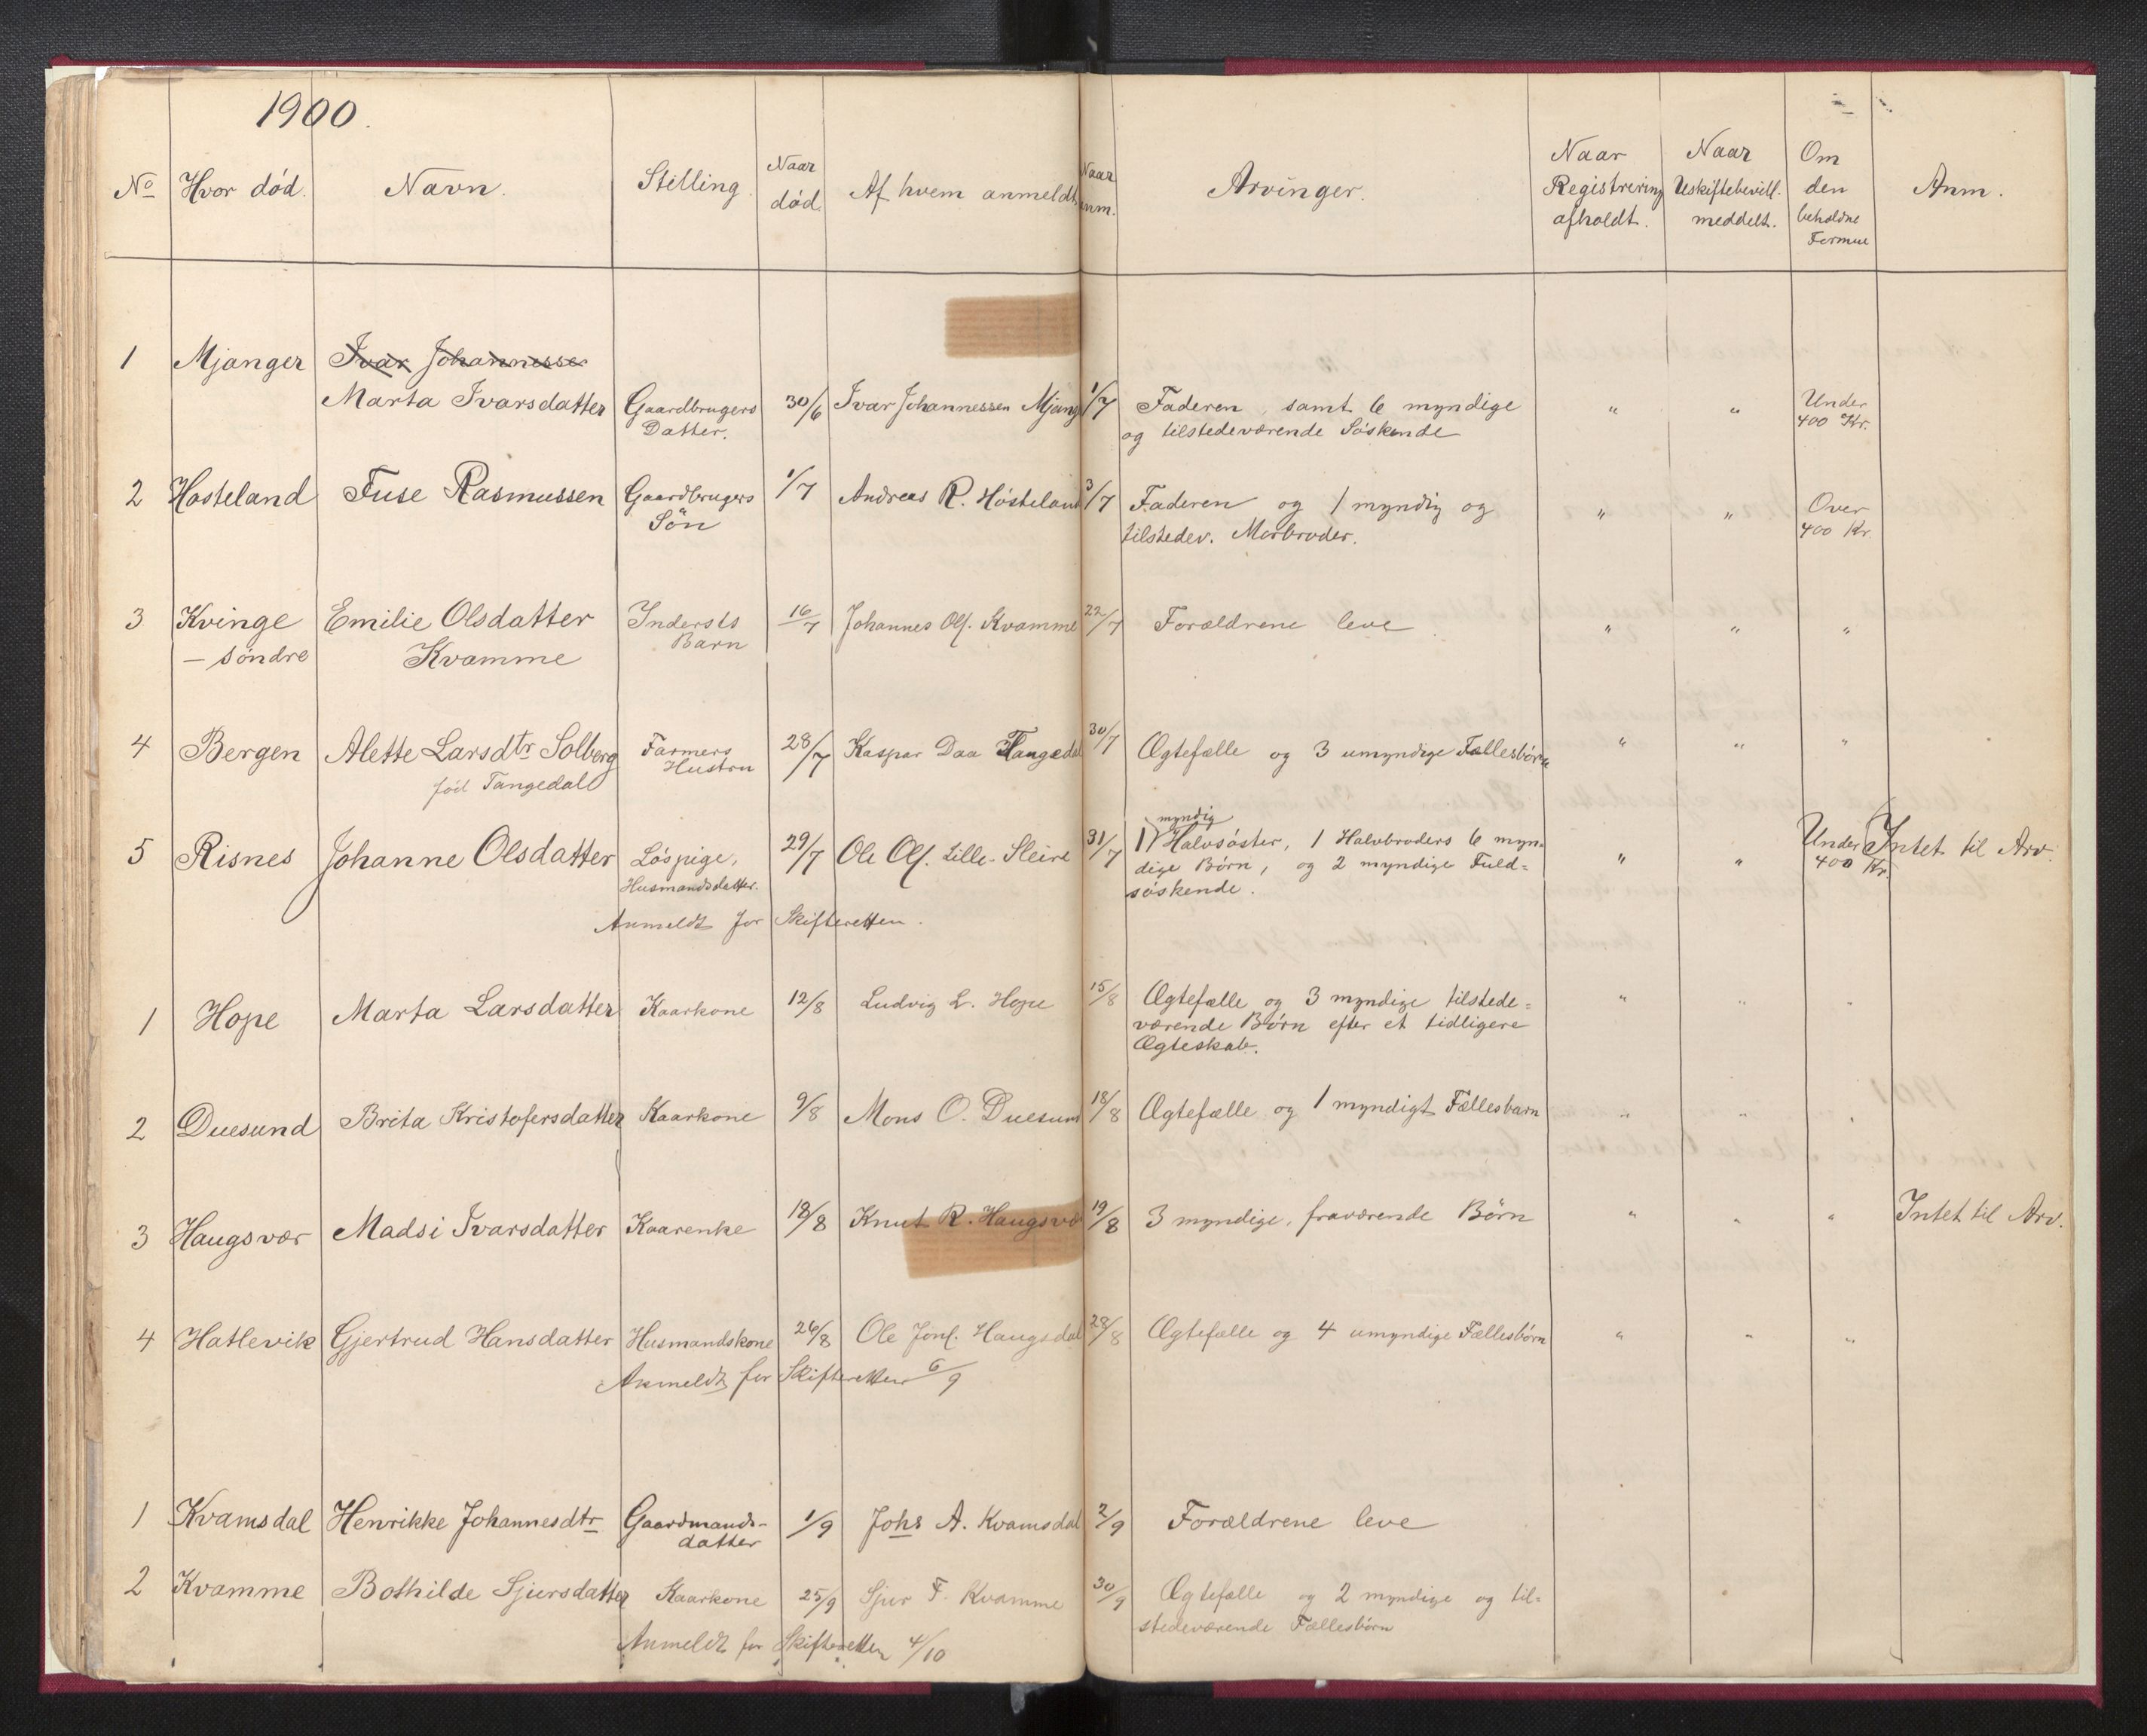 1900.
No Hvor död. Navn. Stilling Naar död. Af hvem anmeldt. Naar anm. Arvinger. Naar Registrering afholdt. Naar Uskiftebevill. meddelt. Om den beholdne Formue Anm.
1 Mjanger Ivar Johannessen
Marta Ivarsdatter Gaardbrugers 30/6 Ivar Johannessen Mjang 1/7 Faderen, samt 6 myndige " " Under
Datter. og tilstedeværende Söskende 400 Kr.
2 Hosteland Fuse Rasmussen Gaardbrugers 1/7 Andreas R. Hösteland 3/7 Faderen og 1 myndig og " " Over
Sön tilstedev. Morbroder. 400 Kr.
3 Kvinge Emilie Olsdatter Indersts 16/7 Johannes Ols. Kvamme 22/7 Forældrene leve " " "
— söndre Kvamme Barn
4 Bergen Alette Larsdtr Solberg Farmers 28/7 Kaspar Daa Tangedal 30/7 Ægtefælle og 3 umyndige Fællesbörn " " "
föd Tangedal Hustru
myndig
5 Risnes Johanne Olsdatter Löspige, 29/7 Ole Ols. Lille-Sleire 31/7 1 Halvsöster, 1 Halvbroders 6 myn- " " Under Intet til Arv.
Husmandsdatter. dige Börn, og 2 myndige Fuld- 400 Kr.
söskende.
Anmeldt for Skifteretten.
1 Hope Marta Larsdatter Kaarkone 12/8 Ludvig L. Hope 15/8 Ægtefælle og 3 myndige tilstede= " " "
værende Börn efter et tidligere
Ægteskab.
2 Duesund Brita Kristofersdatter Kaarkone 9/8 Mons O. Duesund 18/8 Ægtefælle og 1 myndigt Fællesbarn " " "
3 Haugsvær Madsi Ivarsdatter Kaarenke 18/8 Knut R. Haugsvæ 19/8 3 myndige, fraværende Börn " " " Intet til Arv.
4 Hatlevik Gjertrud Hansdatter Husmandskone 26/8 Ole Jons. Haugsdal 28/8 Ægtefælle og 4 umyndige Fællesbörn " " "
Anmeldt for Skifteretten 6/9
1 Kvamsdal Henrikke Johannesdtr Gaardmands- 1/9 Johs A. Kvamsdal 2/9 Forældrene leve
datter
2 Kvamme Bothilde Sjursdatter Kaarkone 25/9 Sjur F. Kvamme 30/9 Ægtefælle og 2 myndige og til=
stedeværende Fællesbörn
Anmeldt for Skifteretten 4/10